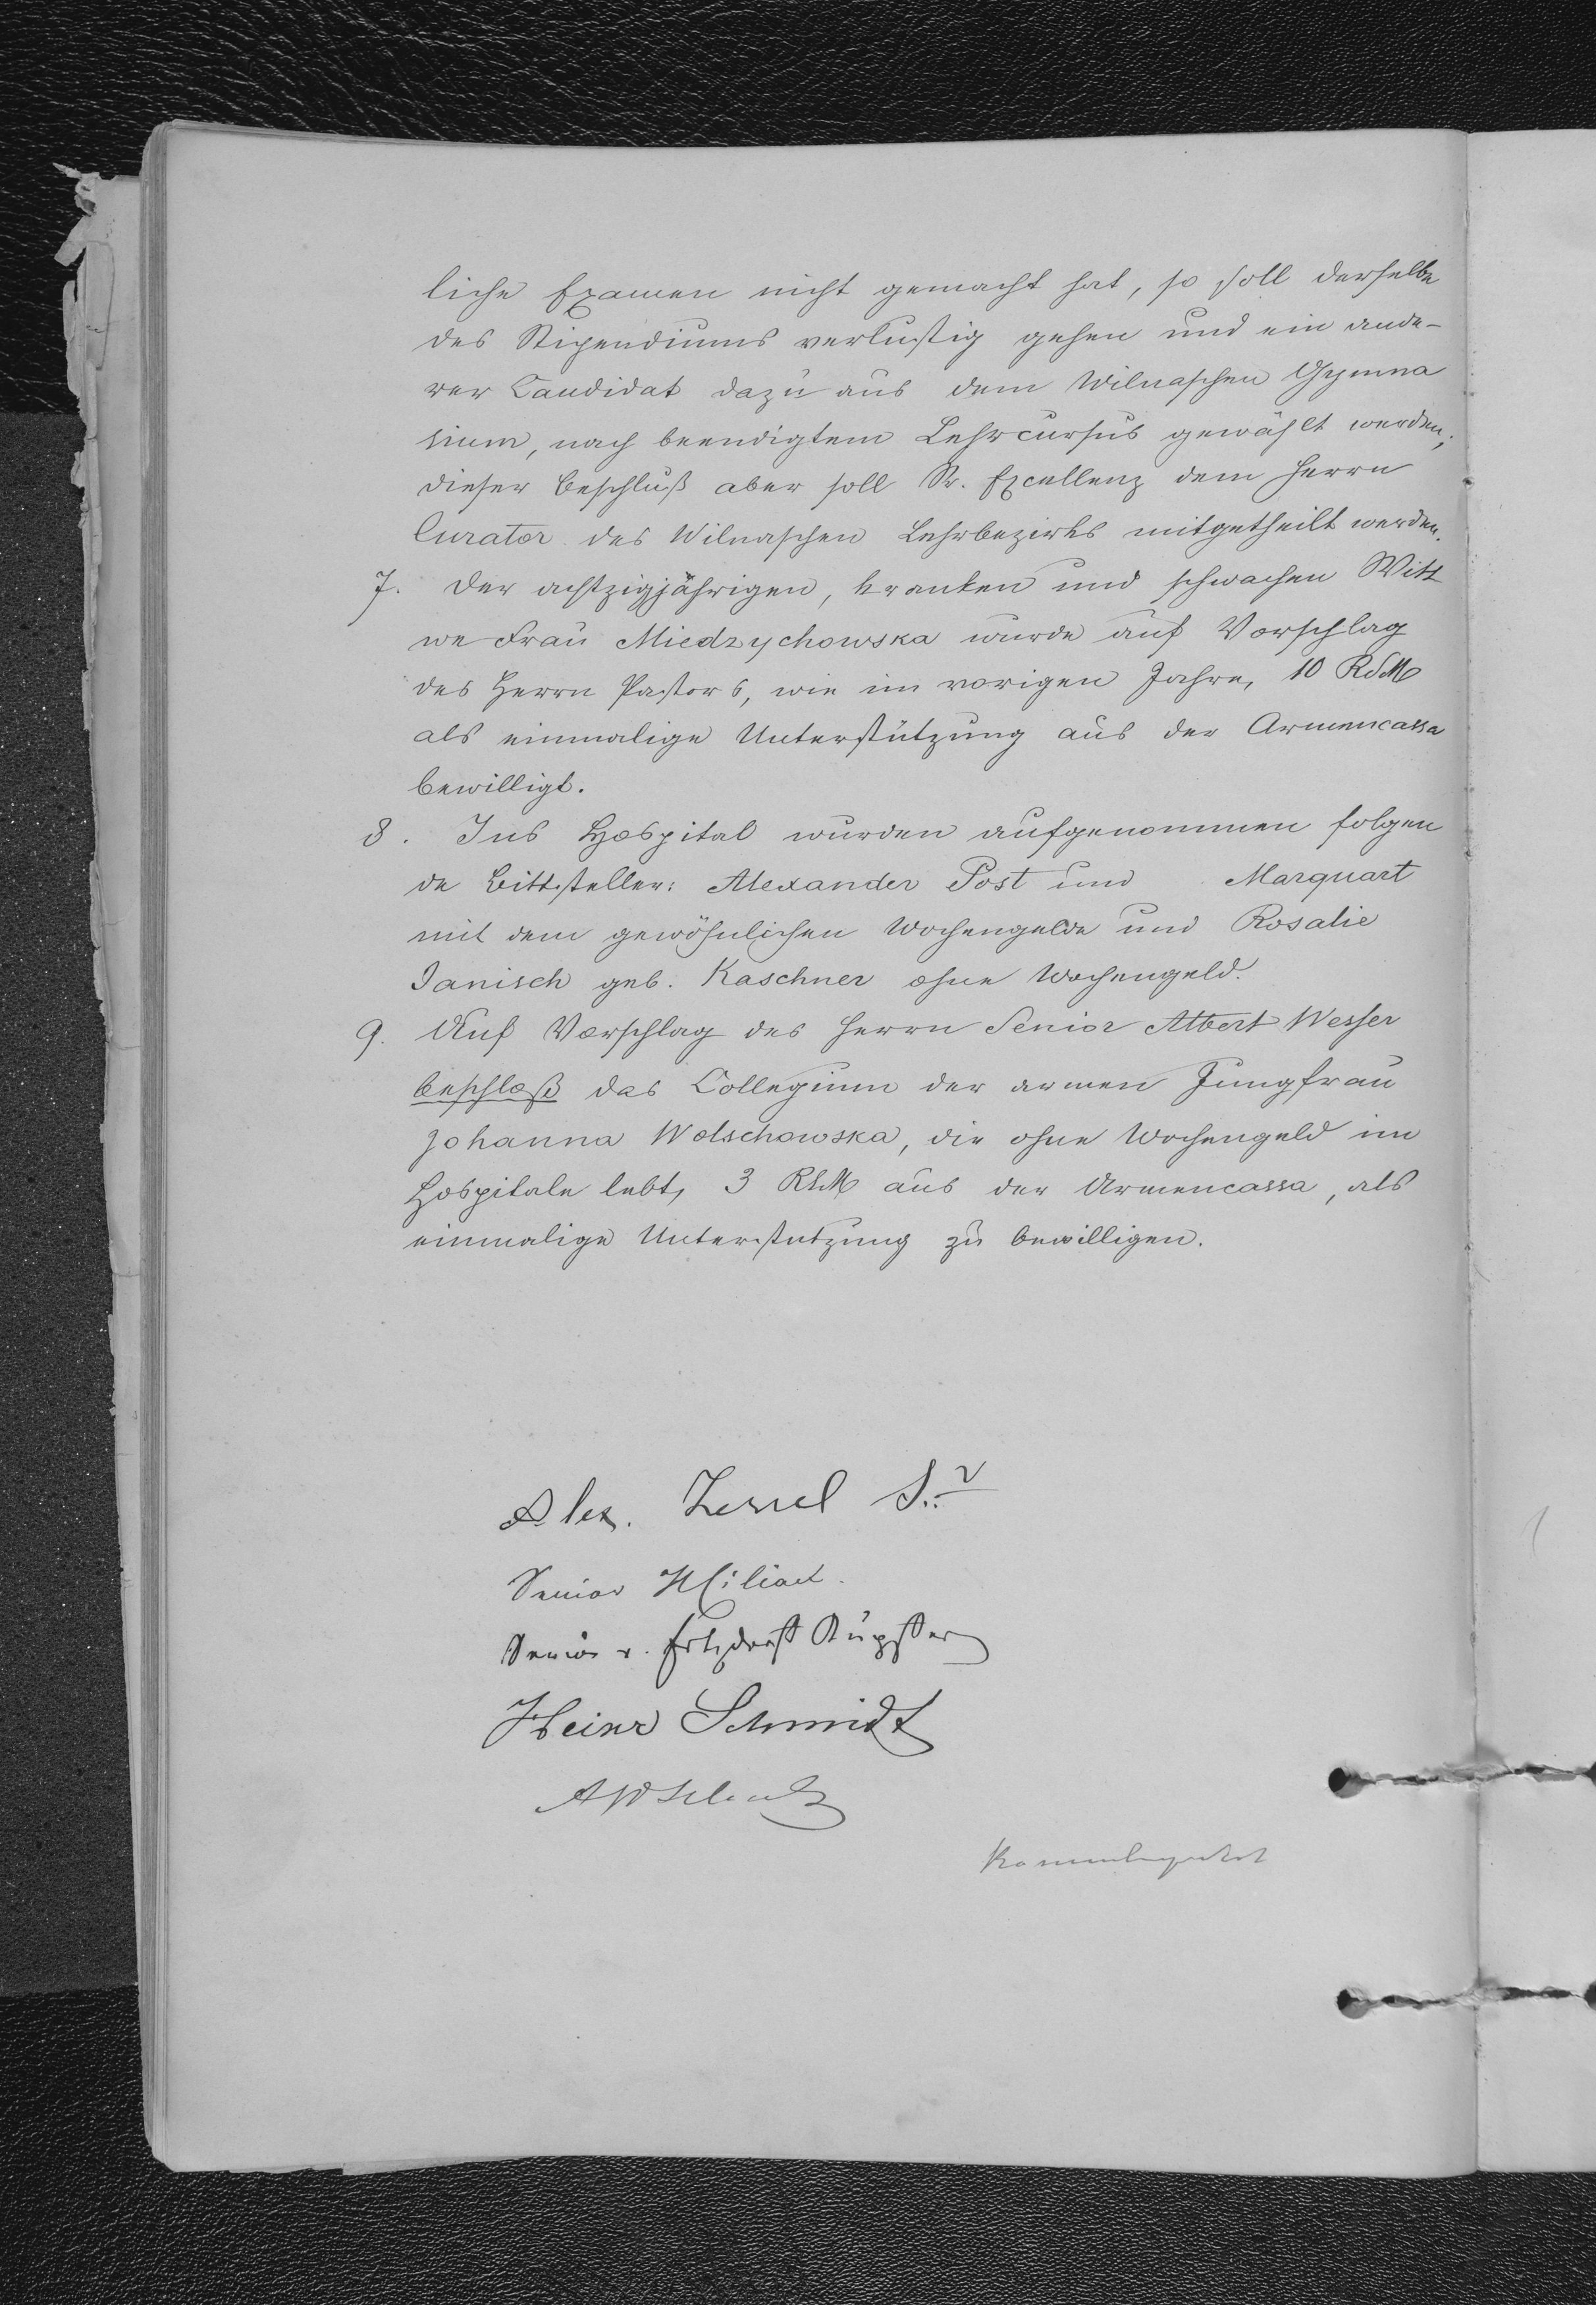 liche Examen nicht gemacht hat, so soll derselbe
des Stipendiums verlustig gehen und ein ande-
rer Candidat dazu aus dem Wilnaschen Gymna
sium, nach beendigtem Lehrcursus gewählt werden;
dieser Beschluß aber soll Sr. Excellenz dem Herrn
Curator des Wilnaschen Lehrbezirks mitgetheilt werden.
7. Der achtzigjährigen, kranken und schwachen Witt
we Frau Miedzychowska wurde auf Vorschlag
des Herrn Pastors, wie im vorigen Jahre, 10 RSM
als einmalige Unterstützung aus der Armencassa
bewilligt.
8. Ins Hospital wurden aufgenommen folgen
de Bittsteller: Alexander Post und Marquart
mit dem gewöhnlichen Wochengelde und Rosalie
Janisch geb. Kaschner ohne Wochengeld.
9. Auf Vorschlag des Herrn Senior Albert Wesser
beschloß das Collegium der armen Jungfrau
Johanna Wolschowska, die ohne Wochengeld im
Hospitale lebt, 3 RSM aus der Armencassa, als
einmalige Unterstutzung zu bewilligen.
Alex.
Senior
Senior v.
Heinr Schmidt